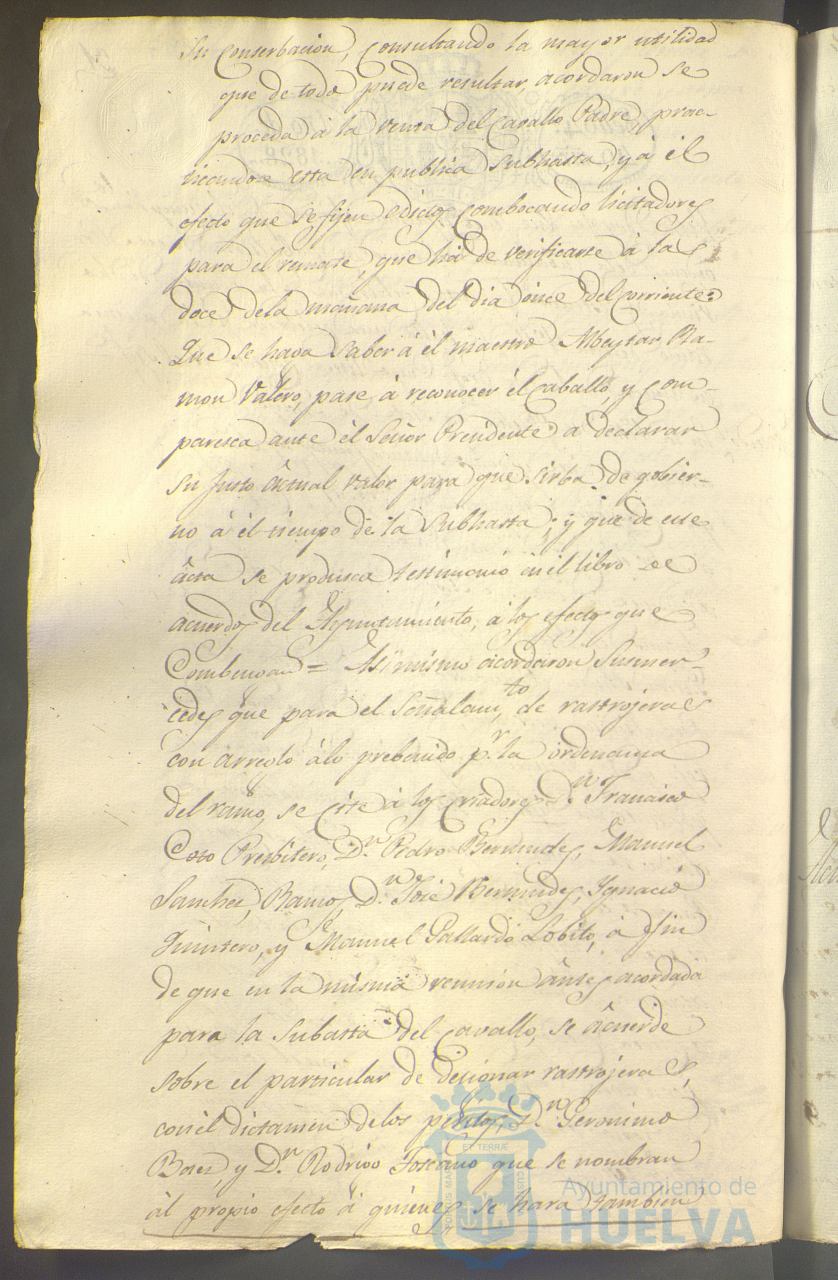 su conserbacion, consultando la mayor utilidad
que de todo puede resultar, acordaron se
proceda á la venta del cavallo Padre, prac-
ticandose esta en publica subhasta, y a él
efecto que se fijen edictos combocando licitadores
para el remate, que há de verificarse á las
doce dela mañana del dia ónce del corriente:
Que se haga saber á él maestro Albeytar Ra-
mon Valero, pase á reconocer él caballo, y com-
paresca ante él Señor Presidente a declarar
su justo áctual valor para que sirba de gobier-
no á él tiempo de la subhasta; y que de este
ácta se produsca testimonio en él libro de
acuerdos del Ayuntamiento, á los efectos que
Combengan = Asi mismo acordaron susmer-
cedes que para el señalamto de rastrojeras
con arreglo álo prebenido pr la ordenanza
del ramo, se cite á los criadores Dn Francisco
Coto Presbitero, Dn Pedro Bermudes, Manuel
Sanches Ramos, Dn José Bermudes, Ygnacio
Quintero, y Manuel Gallardo Lobito, á fin
de que en la misma reunion ántes acordada
para la subasta del cavallo, se ácuerde
sobre el particular de desionar rastrojeras,
con él dictamen delos peritos Dn Geronimo
Baez, y Dn Rodrigo Toscano que se nombran
ál propio efecto á quienes se hara tambien
Ayuntamiento de
HUELVA